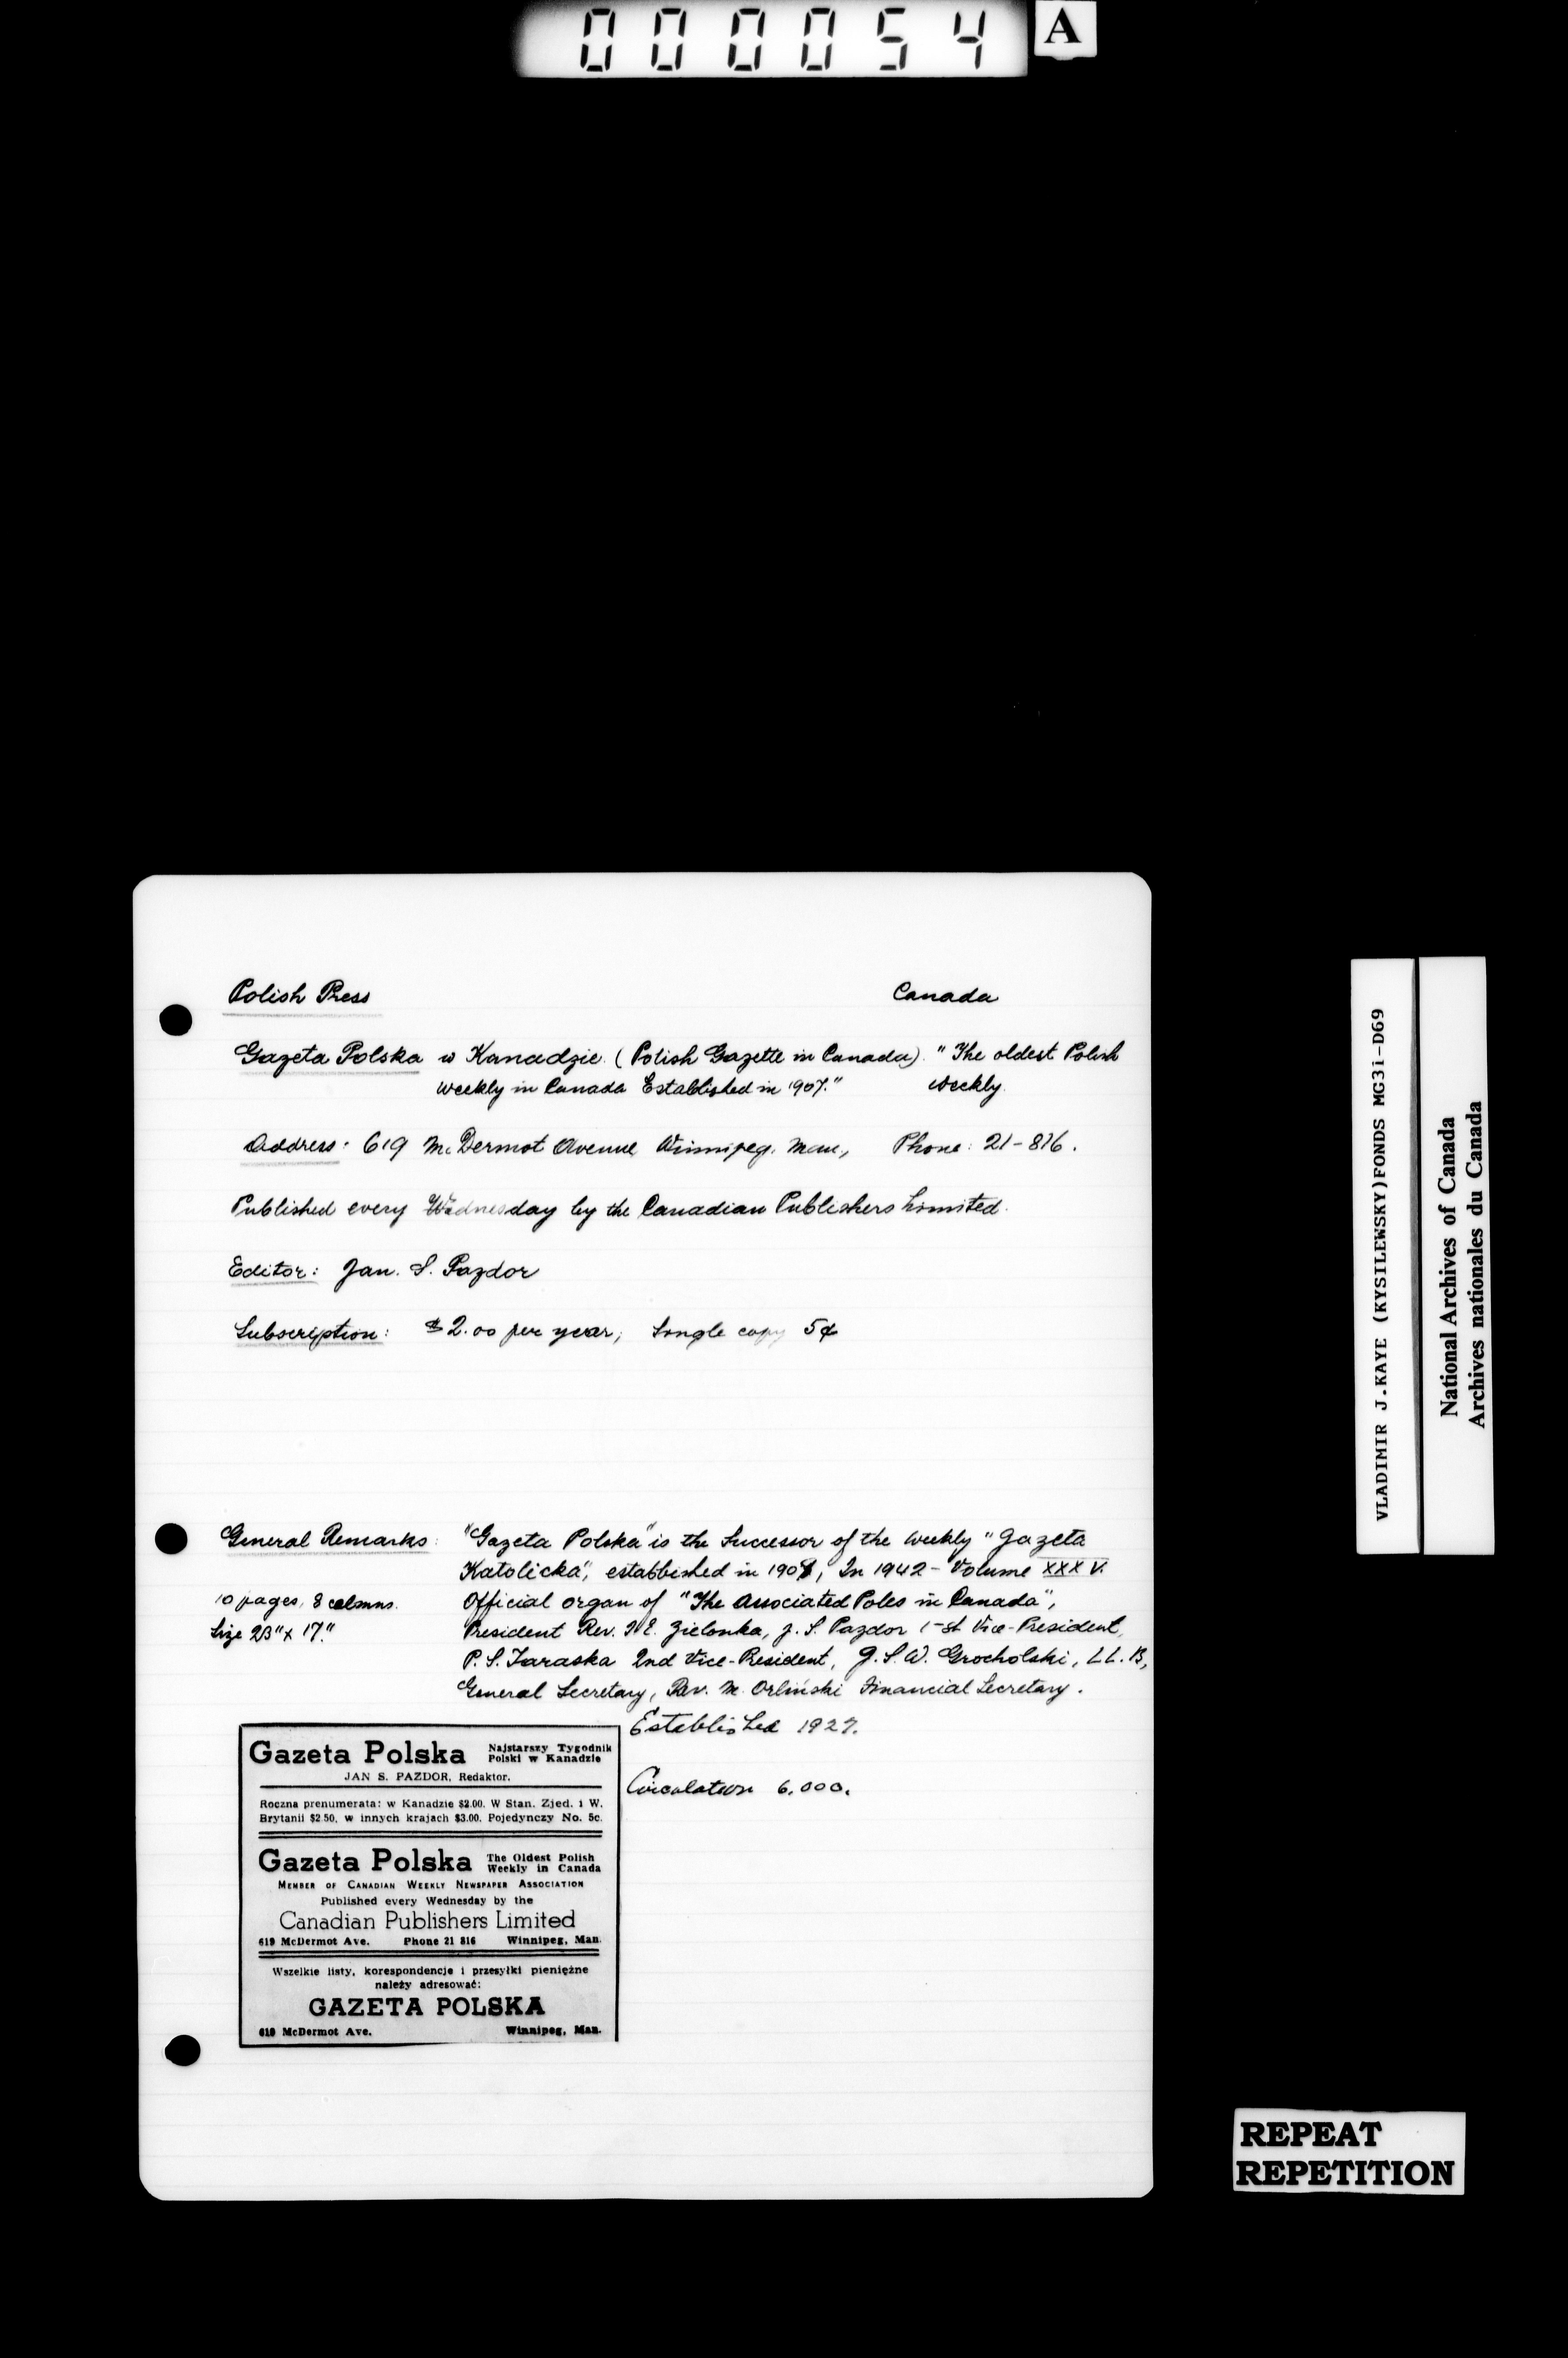 000054 A
Polish Press Canada
Gazeta Polska w Kanadzie. (Polish Gazette in Canada). "The oldest Polish
weekly in Canada Established in 1907." Weekly.
Address: 619 McDermot Avenue Winnipeg, Man., Phone: 21-816.
Published every Wednesday by the Canadian Publishers Limited.
Editor: Jan. S. Pazdor
Subscription: $2.00 per year, Single copy 5¢
General Remarks: "Gazeta Polska" is the Successor of the weekly "Gazeta
Katolicka", established in 1908, In 1942 - Volume XXXV.
10 pages, 8 columns. Official organ of "The Associated Poles in Canada",
Size 23" x 17." President Rev. Zielonka, J. S. Pazdor 1-st Vice-President,
P. S. Taraska 2nd Vice-President, G. S. W. Grocholski, LL. B,
General Secretary, Rev. M. Orliński Financial Secretary.
Established 1927.
Circulation 6,000.
Gazeta Polska Najstarszy Tygodnik
Polski w Kanadzie
JAN S. PAZDOR, Redaktor.
Roczna prenumerata: w Kanadzie $2.00. W Stan. Zjed. i W.
Brytanii $2.50, w innych krajach $3.00. Pojedynczy No. 5c.
Gazeta Polska The Oldest Polish
Weekly in Canada
MEMBER OF CANADIAN WEEKLY NEWSPAPER ASSOCIATION
Published every Wednesday by the
Canadian Publishers Limited
619 McDermot Ave. Phone 21 816 Winnipeg, Man.
Wszelkie listy, korespondencje i przesyłki pieniężne
należy adresować:
GAZETA POLSKA
619 McDermot Ave. Winnipeg, Man.
VLADIMIR J.KAYE (KYSILEWSKY)FONDS MG31-D69
National Archives of Canada
Archives nationales du Canada
REPEAT
REPETITION